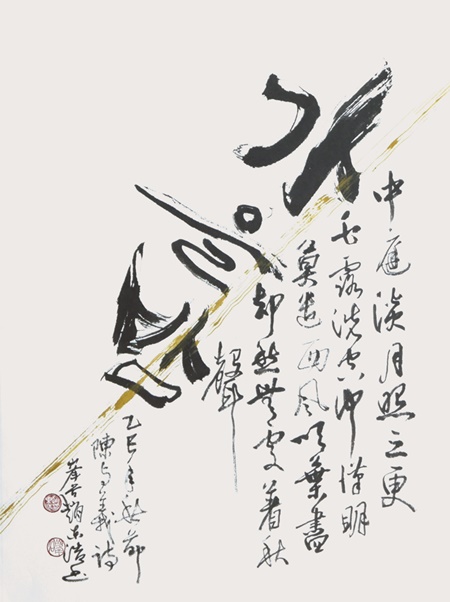 中庭淡月照三更
白露洗空河漢明
莫遣西風吹葉盡
却愁無處着秋
聲
乙巳年秋節
陳與義詩